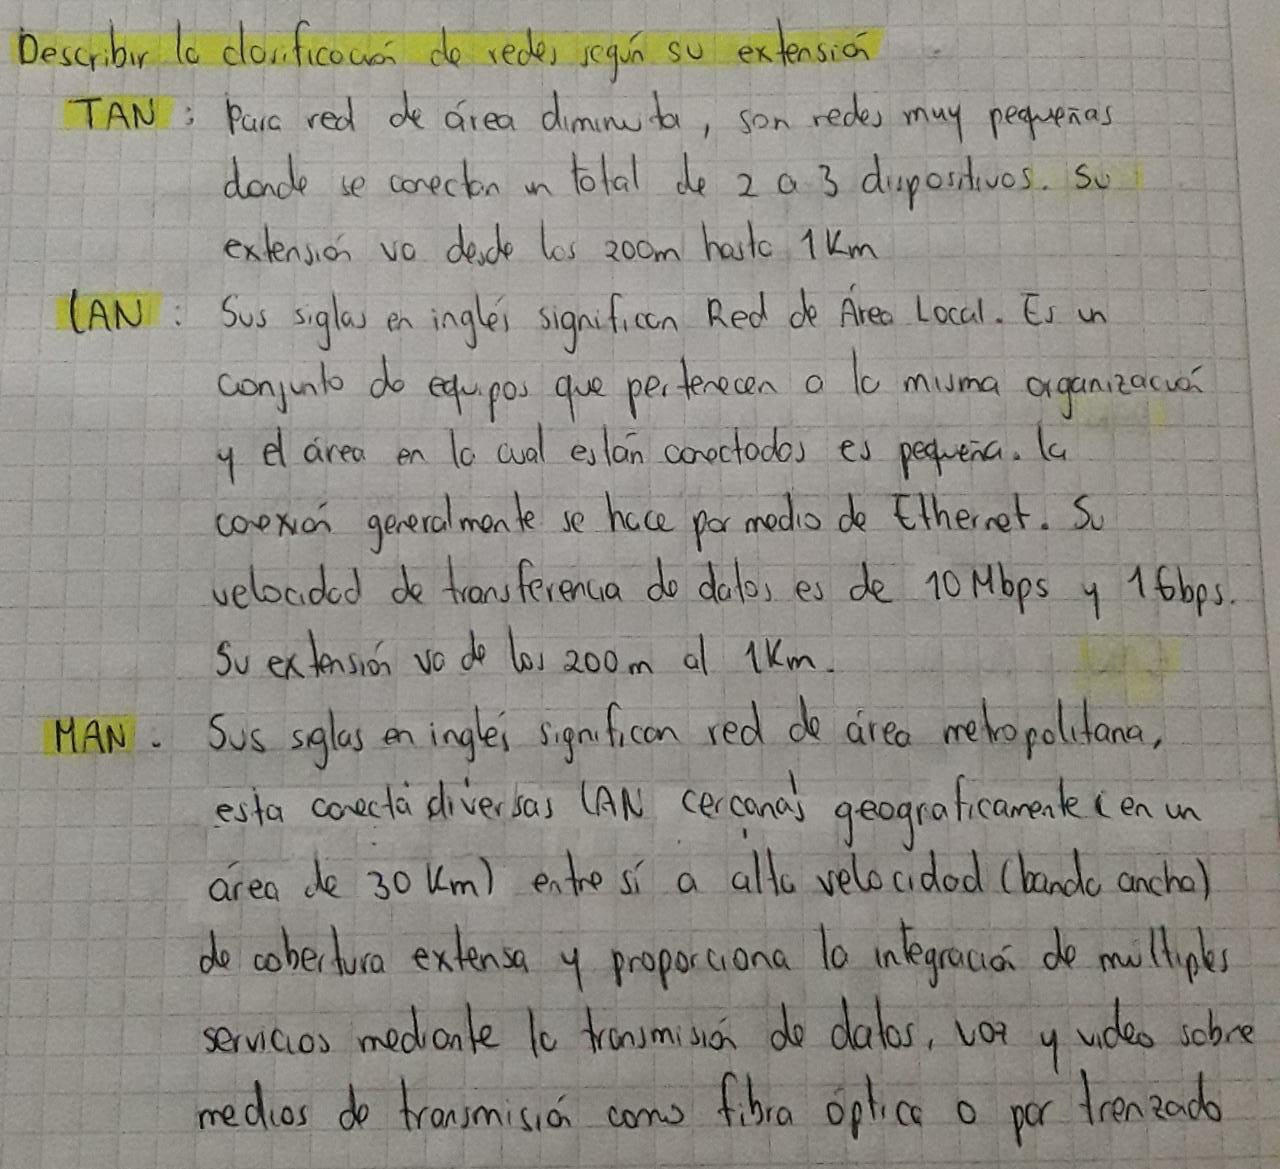 Describir la clasificación de redes según su extensión
TAN: Para red de área diminuta, son redes muy pequeñas
donde se conectan un total de 2 a 3 dispositivos. Su
extensión va desde los 200m hasta 1Km
LAN: Sus siglas en inglés significan Red de Área Local. Es un
conjunto de equipos que pertenecen a la misma organización
y el área en la cual están conectados es pequeña. La
conexión generalmente se hace por medio de Ethernet. Su
velocidad de transferencia de datos es de 10 Mbps y 1Gbps.
Su extensión va de los 200m al 1Km.
MAN. Sus siglas en inglés significan red de área metropolitana,
esta conecta diversas LAN cercanas geograficamente (en un
área de 30 Km) entre sí a alta velocidad (banda ancha)
de cobertura extensa y proporciona la integración de múltiples
servicios mediante la transmisión de datos, voz y video sobre
medios de transmisión como fibra óptica o par trenzado